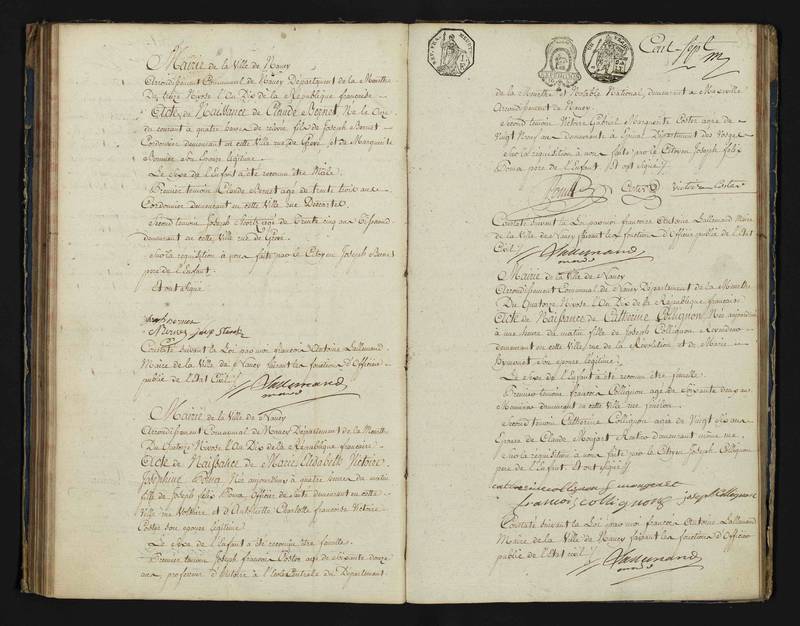 Mairie de la Ville de Nancy
Arrondissement Communal de Nancy Département de la Meurthe
Du treize Nivose l'An Dix de la République françoise
Acte de Naissance de Claude Bernet Né le Onze
du courant à quatre heures de relevée fils de Joseph Bernet
Cordonnier demeurant en cette Ville rue de Grève et de Marguerite
son Epouse légitime
Le Sexe de l'Enfant a été reconnu être Mâle
Premier temoin Claude Bernet agé de trente trois ans
Cordonnier demeurant en cette Ville rue
Second temoin Joseph agé de Trente cinq ans Tisserand
demeurant en cette Ville rue de Grève
Sur la réquisition à nous faite par le Citoyen Joseph Bernet
pere de l'Enfant
Et ont signé
Constaté suivant la Loi par moi françois Antoine Lallemand
Maire de la Ville de Nancy faisant les fonctions d'Officier
public de l'Etat Civil
Lallemand
maire
Mairie de la Ville de Nancy
Arrondissement Communal de Nancy Département de la Meurthe
Du Quatorze Nivose l'An Dix de la République françoise
Acte de Naissance de Marie Elisabeth Victoire
Joséphine Née aujourdhui à quatre heures du matin
fille de Joseph félix Officier de santé demeurant en cette
Ville rue Voltaire et d'Antoinette Charlotte françoise Victoire
Coster son epouse légitime
Le Sexe de l'Enfant a été reconnu être femelle
Premier temoin Joseph françois Coster agé de Soixante douze
ans professeur d'Histoire à l'Ecole Centrale du Département
Cent Sept
de la Meurthe et Notable National, demeurant à Maxeville
Arrondissement de Nancy
Second temoin Victoire Gabriel Marguerite Coster agée de
Vingt Neuf ans demeurante à Epinal Département des Vosges
Sur la réquisition à nous faite par le Citoyen Joseph félix
pere de l'Enfant Et ont signé
Coster Victoire Coster
Constaté suivant la Loi par moi françois Antoine Lallemand Maire
de la Ville de Nancy faisant les fonctions d'Officier public de l'Etat
Civil
Lallemand
maire
Mairie de la Ville de Nancy
Arrondissement Communal de Nancy Département de la Meurthe
Du Quatorze Nivose l'An Dix de la République françoise
Acte de Naissance de Catherine Collignon Née aujourdhui
à une heure du matin fille de Joseph Collignon Revendeur
demeurant en cette Ville rue de la Révolution et de Marie
son epouse légitime
Le Sexe de l'Enfant a été reconnu être femelle
Premier temoin françois Collignon agé de Soixante deux ans
Manœuvre demeurant en cette Ville rue
Second temoin Catherine Collignon agée de Vingt six ans
Epouse de Claude Rentier demeurant même rue
Sur la réquisition à nous faite par le Citoyen Joseph Collignon
pere de l'Enfant Et ont signé
françois collignon joseph Collignon
Constaté suivant la Loi par moi françois Antoine Lallemand
Maire de la Ville de Nancy faisant les fonctions d'Officier
public de l'etat civil
Lallemand
maire